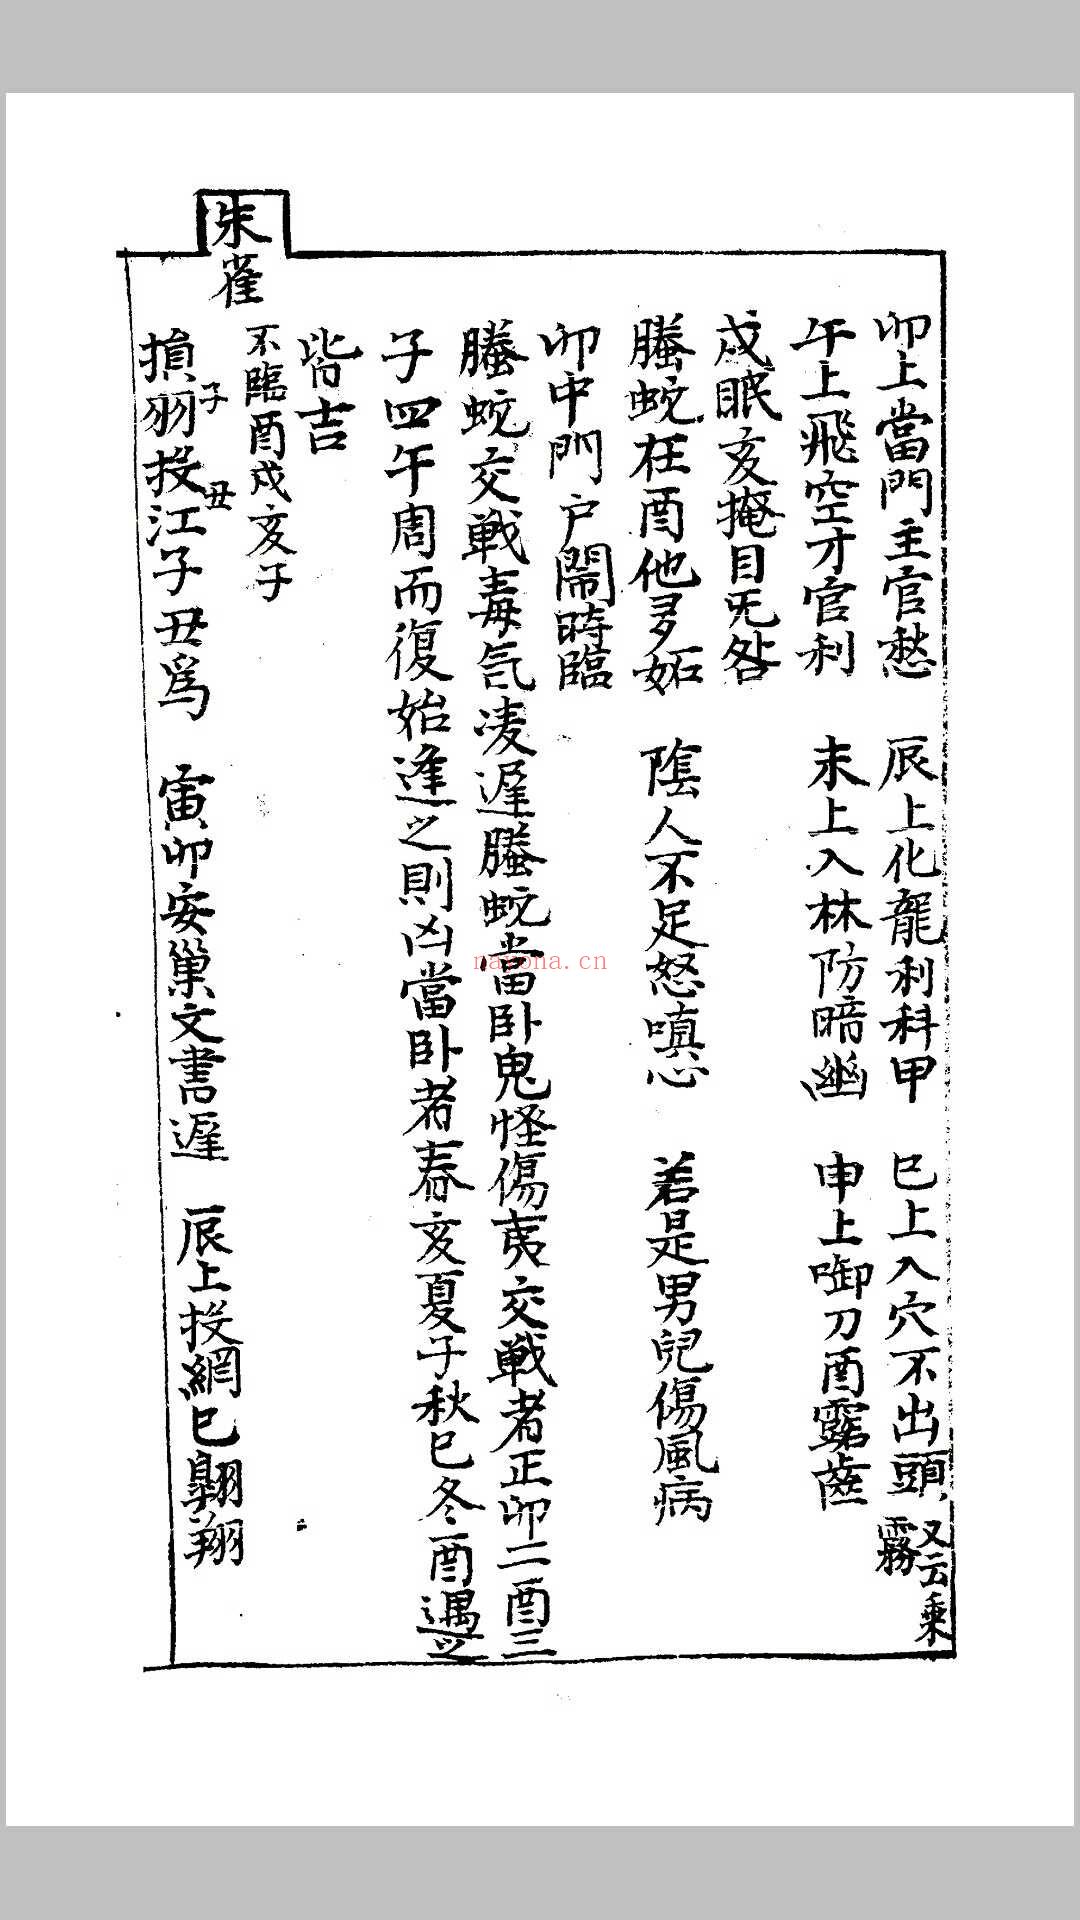 卯上當門主官愁　辰上化龍利科甲　巳上入穴不出頭　又云乘霧
午上飛空才官利　未上入林防暗幽　申上啣刀酉露齒
戍眠亥掩目旡咎
螣蛇在酉他多妬　陰人不足怒嗔心　若是男兒傷風病
卯中門户鬧時臨
螣蛇交戦毒氣凌遲螣蛇當卧鬼怪傷夷交戦者正卯二酉三
子四午周而復始逢之則凶當卧者春亥夏子秋巳冬酉遇之
皆吉
朱雀
不臨酉戍亥子
損羽子投江丑子丑爲　寅卯安巢文書遲　辰上投網巳翺翔
nayona.cn